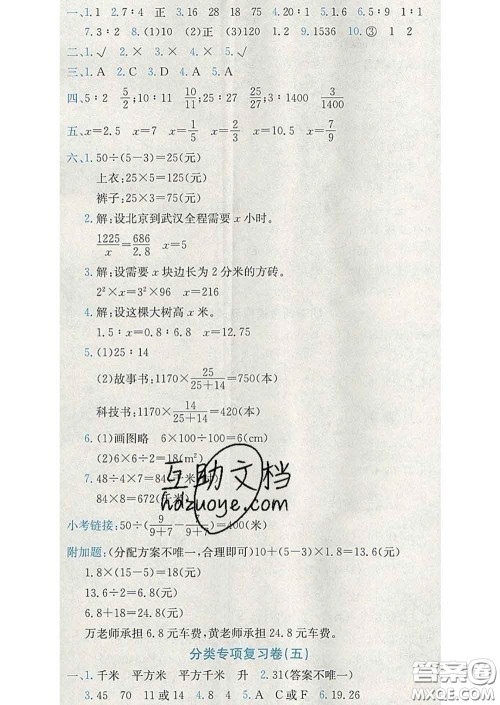 一、1. 2.7∶4 正 3.16 28 18 75 4.20∶1 5.1.6 6.5∶9 1∶1
7.3∶2 8.(1)10 (2)正 (3)120 1.2 9.1536 10.③ 1 2
二、1.√ 2.× 3.× 4.× 5.√
三、1.A 2.C 3.D 4.A 5.A
四、5∶2 5/2;10∶11 10/11;25∶27 25/27;3∶1400 3/1400
五、x=2.5 x=7 x=1/5 x=2/3 x=10.5 x=7/9
六、1.50÷(5-3)=25(元)
上衣:25×5=125(元)
裤子:25×3=75(元)
2.解:设北京到武汉全程需要 x 小时。
1225/x=686/2.8 x=5
3.解:设需要 x 块边长为 2 分米的方砖。
2²×x=3²×96 x=216
4.解:设这棵大树高 x 米。
1.5∶x=0.8∶6.8 x=12.75
5.(1)25∶14
(2)故事书:1170×25/(25+14)=750(本)
科技书:1170×14/(25+14)=420(本)
6.(1)画图略 6×100÷100=6(cm)
(2)6×6÷2=18(m²)
7.48÷4×7=84(千米)
84×8=672(千米)
小考链接:50÷(9/(9+7)-/(9+7))=400(米)
互助文档
hdzuoye.com
附加题:(分配方案不唯一,合理即可)10+(5-3)×1.8=13.6(元)
1.8×(15-5)=18(元)
13.6÷2=6.8(元)
6.8+18=24.8(元)
万老师承担 6.8 元车费,黄老师承担 24.8 元车费。
分类专项复习卷(五)
一、1.千米 平方米 平方千米 升 2.31(答案不唯一)
3.45 70 11或14 4.8 4 5.A C或F 6.19.26
答案圈
MXQE.COM